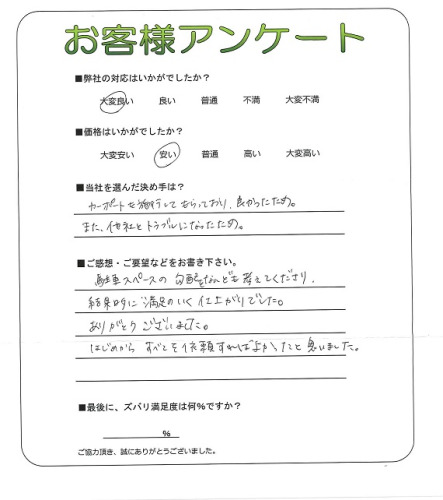 お客様アンケート
■弊社の対応はいかがでしたか？
大変良い 良い 普通 不満 大変不満
■価格はいかがでしたか？
大変安い 安い 普通 高い 大変高い
■当社を選んだ決め手は？
カーポートを施行してもらっており、良かったため。
また、他社とトラブルになったため。
■ご感想・ご要望などをお書き下さい。
駐車スペースの勾配なども考えてくださり、
結果的に満足のいく仕上がりでした。
ありがとうございました。
はじめから すべてを依頼すればよかったと思いました。
■最後に、ズバリ満足度は何%ですか？
%
ご協力頂き、誠にありがとうございました。